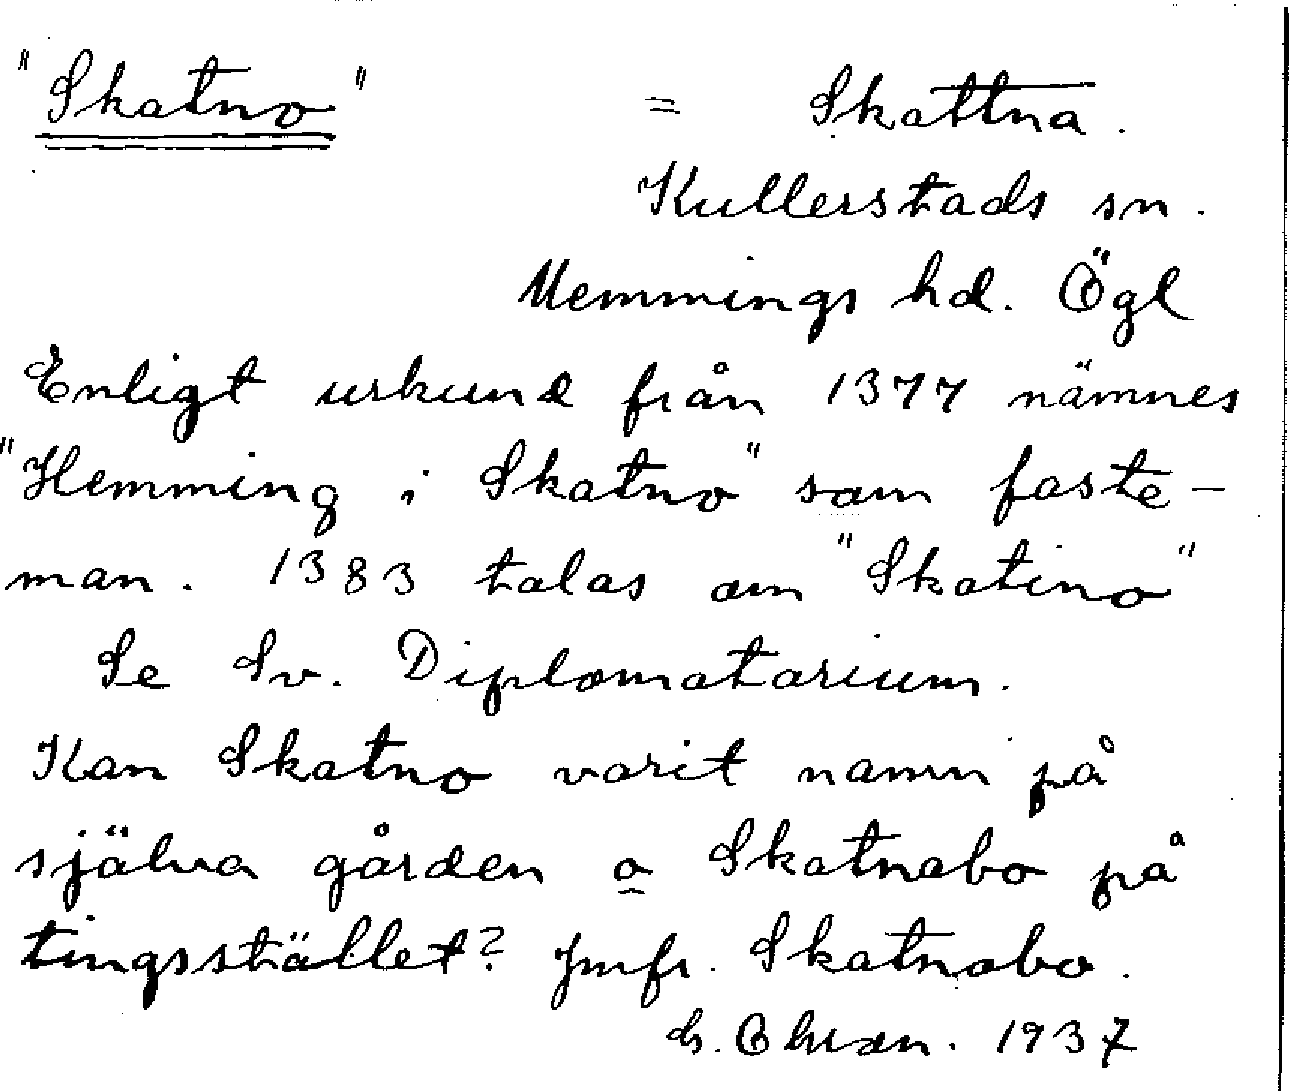 "Skatno" = Skattna.
Kullerstads sn.
Memmings hd. Ögl
Enligt urkund från 1377 nämnes
"Hemming i Skatno" som faste-
man. 1383 talas om "Skatino"
Se Sv. Diplomatarium.
Kan Skatno varit namn på
själva gården o Skatnabo på
tingsstället? Jmfr. Skatnabo.
1937